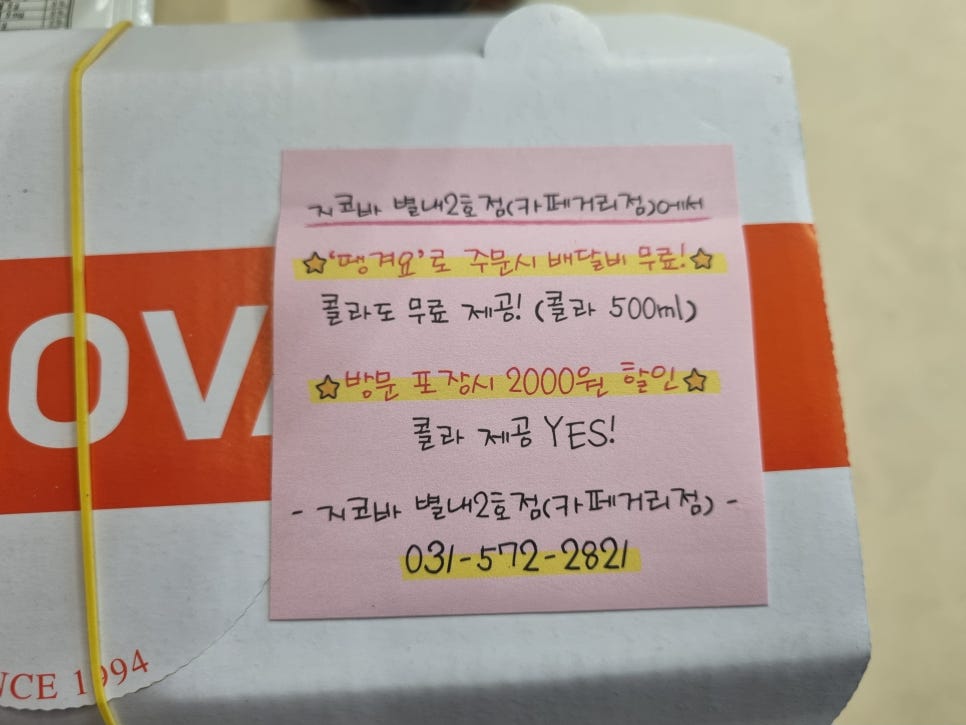 지코바 별내2호점(카페거리점)에서
☆'땡겨요'로 주문시 배달비 무료!☆
콜라도 무료 제공! (콜라 500ml)
☆방문 포장시 2000원 할인☆
콜라 제공 YES!
- 지코바 별내2호점(카페거리점) -
031-572-2821
OVA
NCE 1994